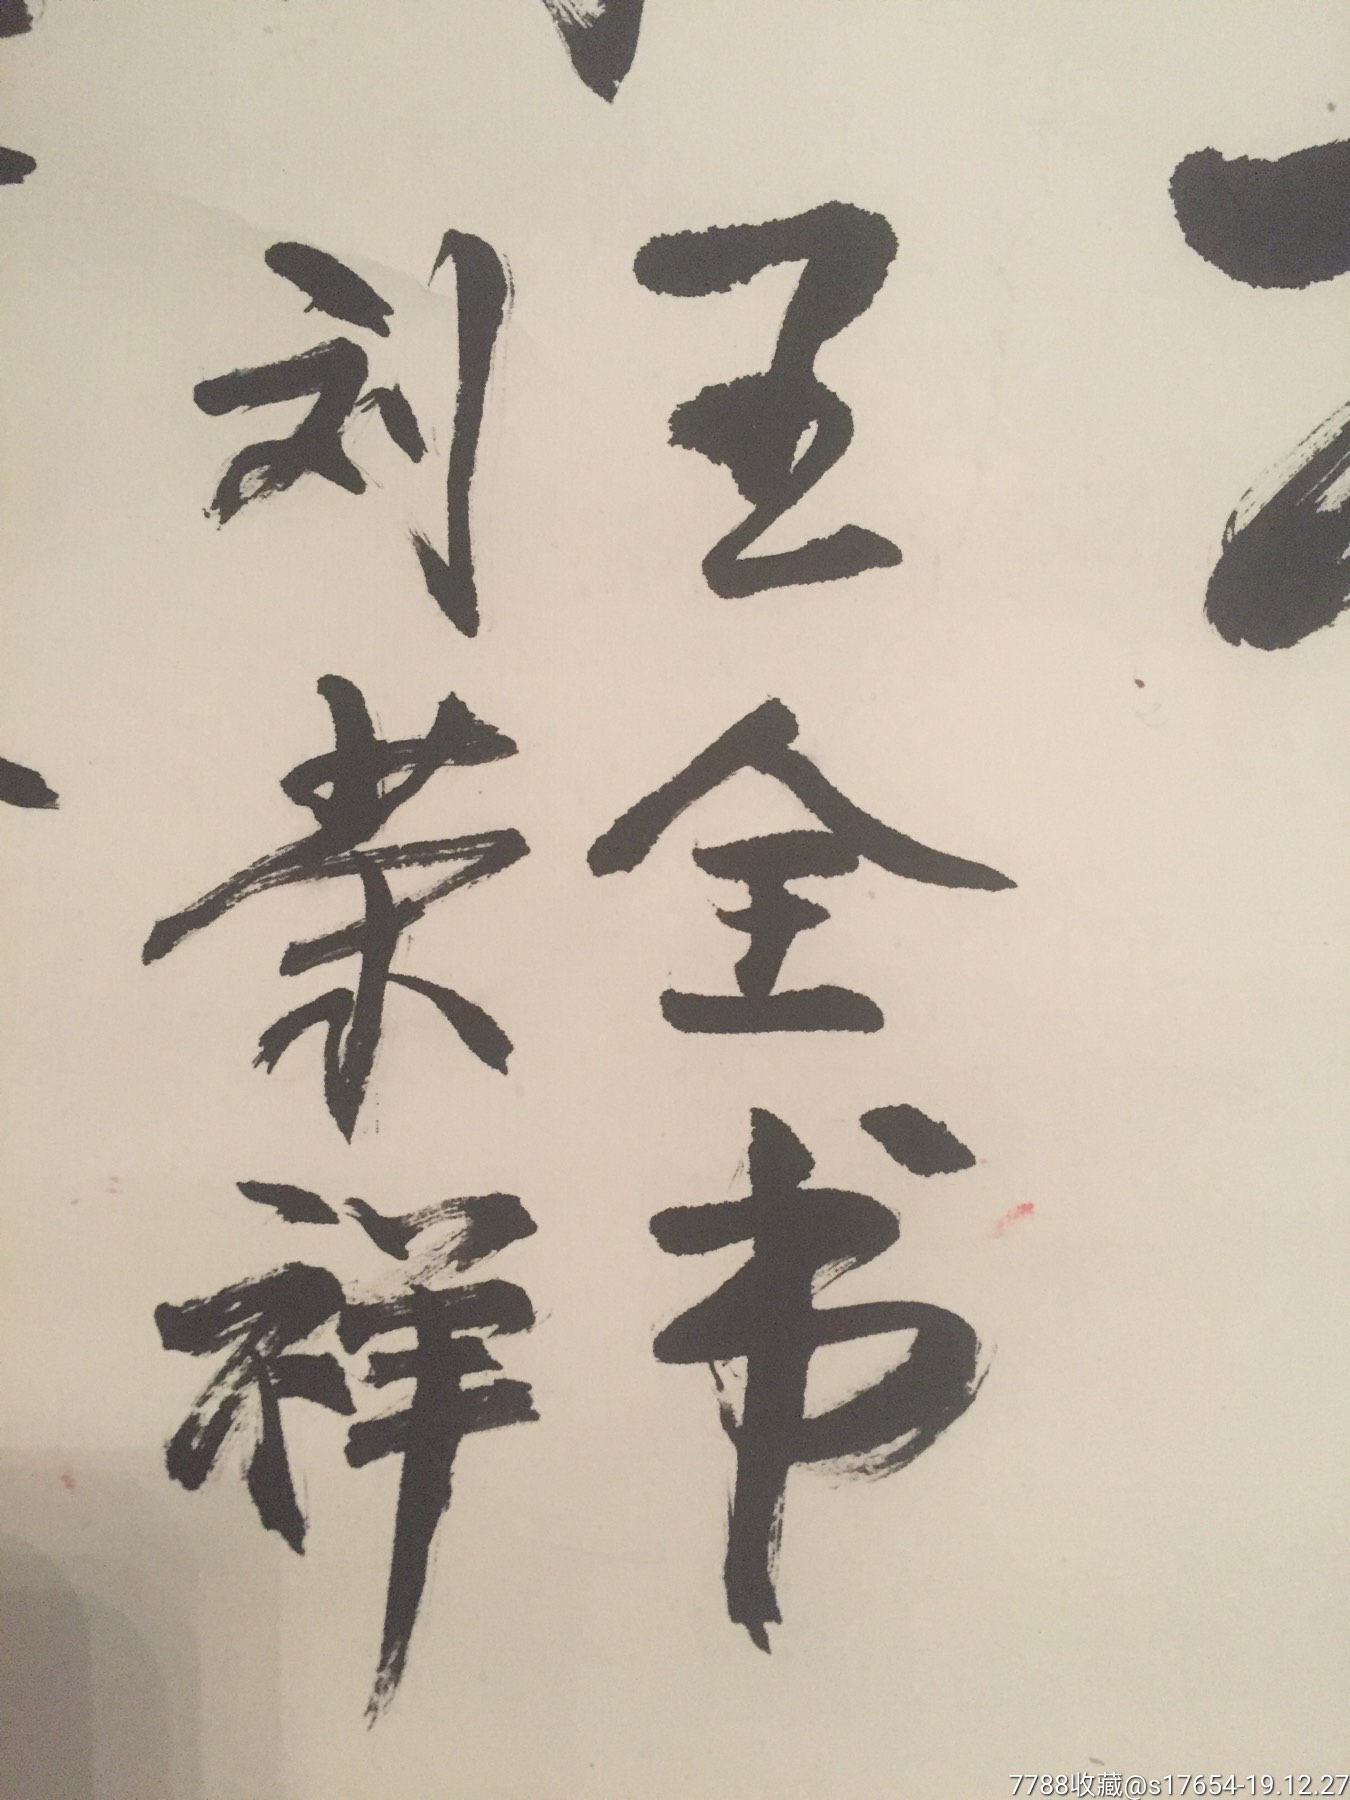 王全书
刘荣祥
7788收藏@s17654-19.12.27